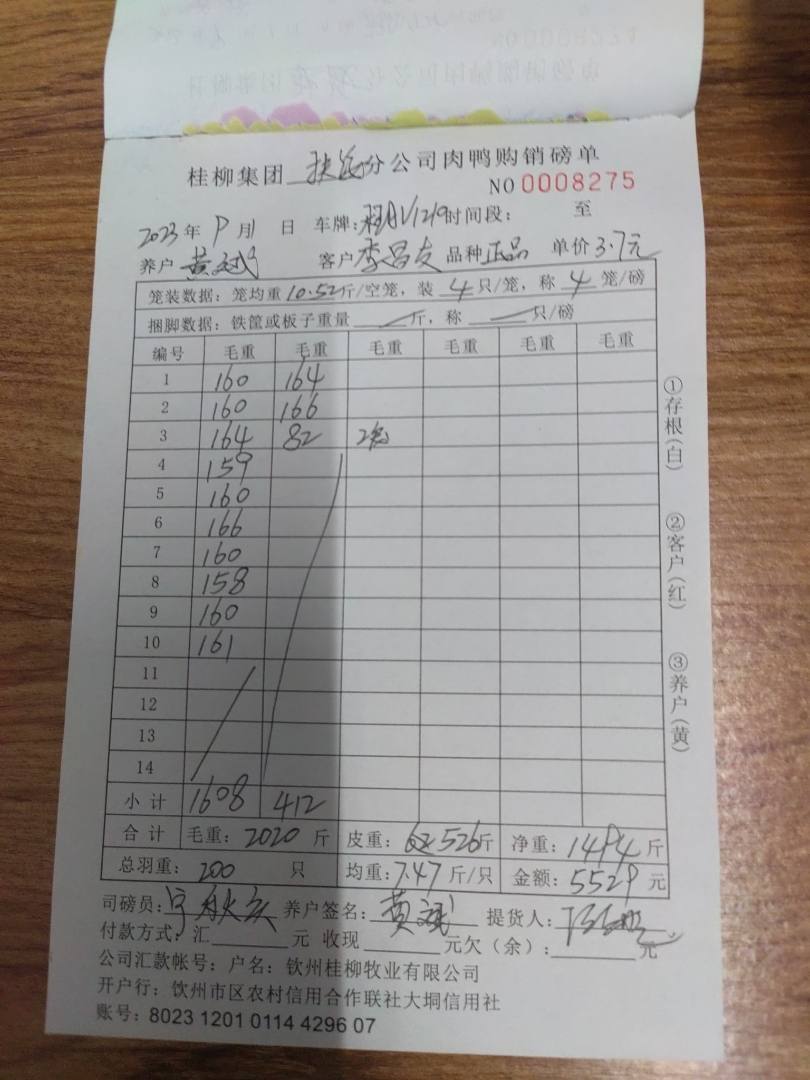 桂柳集团 分公司肉鸭购销磅单
NO 0008275
2023年9月11日 车牌: 时间段: 至
养户 黄斌 客户 李昌友 品种 正品 单价 3.7元
笼装数据: 笼均重10.52斤/空笼, 装4只/笼, 称4笼/磅
捆脚数据: 铁筐或板子重量 斤, 称 只/磅
编号 毛重 毛重 毛重 毛重 毛重 毛重
1 160 164
2 160 166
3 164 82 2笼
4 159
5 160
6 166
7 160
8 158
9 160
10 161
11
12
13
14
小计 1608 412
合计 毛重: 2020斤 皮重: 526斤 净重: 1494斤
总羽重: 200 只 均重: 7.47斤/只 金额: 5529元
司磅员: 养户签名: 黄斌 提货人:
付款方式: 汇 元 收现 元欠(余): 元
公司汇款帐号: 户名: 钦州桂柳牧业有限公司
开户行: 钦州市区农村信用合作联社大垌信用社
账号: 8023 1201 0114 4296 07
①存根(白)
②客户(红)
③养户(黄)